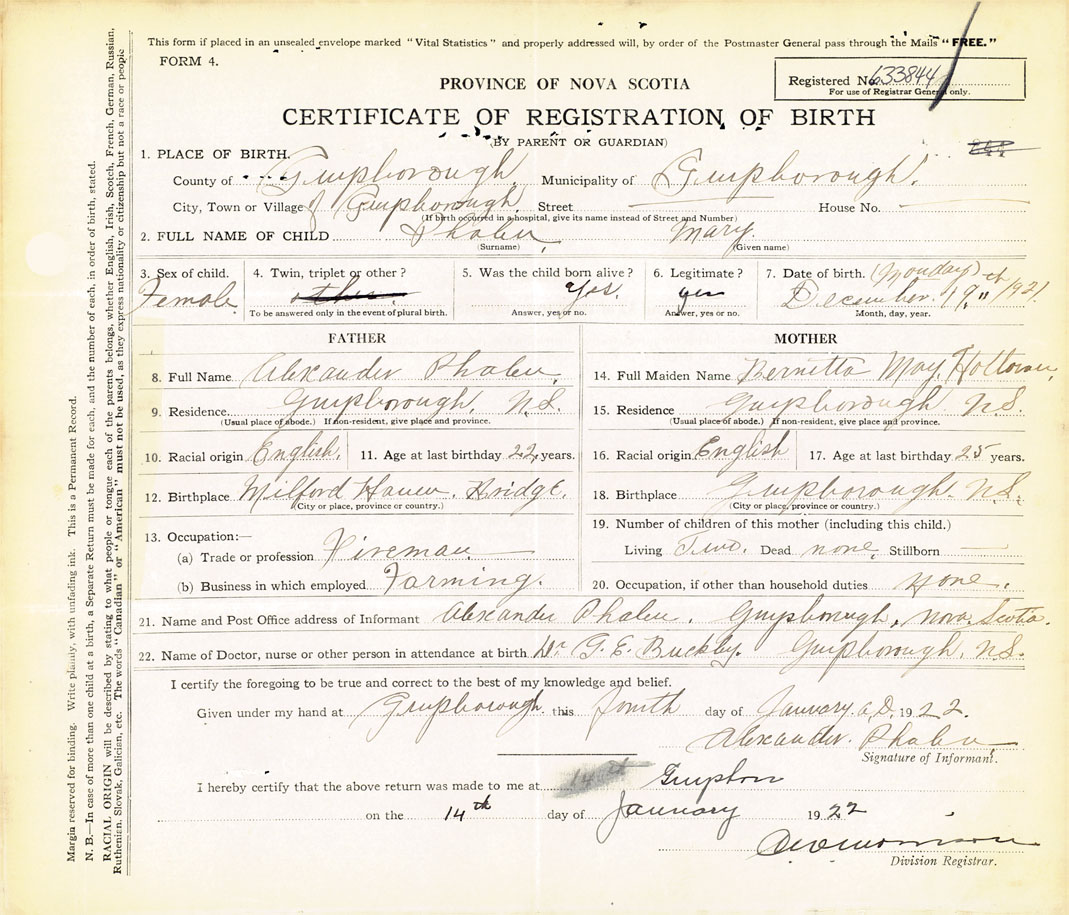 This form if placed in an unsealed envelope marked "Vital Statistics" and properly addressed will, by order of the Postmaster General pass through the Mails "FREE."
FORM 4.
Registered No. 633844
For use of Registrar General only.
PROVINCE OF NOVA SCOTIA
CERTIFICATE OF REGISTRATION OF BIRTH
(BY PARENT OR GUARDIAN)
1. PLACE OF BIRTH.
County of Guysborough Municipality of Guysborough.
City, Town or Village of Guysborough Street House No.
(If birth occurred in a hospital, give its name instead of Street and Number)
2. FULL NAME OF CHILD Phalen, Mary.
(Surname) (Given name)
3. Sex of child. 4. Twin, triplet or other? 5. Was the child born alive? 6. Legitimate? 7. Date of birth. (Monday)
Female other. Yes. yes December. 19th 1921
To be answered only in the event of plural birth. Answer, yes or no. Answer, yes or no. Month, day, year.
FATHER
8. Full Name Alexander Phalen.
9. Residence. Guysborough, N.S.
(Usual place of abode.) If non-resident, give place and province.
10. Racial origin English. 11. Age at last birthday 22 years.
12. Birthplace Milford Haven. Bridge.
(City or place, province or country.)
13. Occupation:—
(a) Trade or profession Fireman
(b) Business in which employed Farming.
MOTHER
14. Full Maiden Name Bernetta May
15. Residence Guysborough N.S.
(Usual place of abode.) If non-resident, give place and province.
16. Racial origin English 17. Age at last birthday 25 years.
18. Birthplace Guysborough. N.S.
(City or place, province or country.)
19. Number of children of this mother (including this child.)
Living Two. Dead none, Stillborn —
20. Occupation, if other than household duties None.
21. Name and Post Office address of Informant Alexander Phalen. Guysborough, Nova Scotia.
22. Name of Doctor, nurse or other person in attendance at birth Dr G. E. Buckley. Guysborough, N.S.
I certify the foregoing to be true and correct to the best of my knowledge and belief.
Given under my hand at Guysborough. this fourth day of January A.D. 1922.
Alexander. Phalen
Signature of Informant.
I hereby certify that the above return was made to me at 14th
on the 14th day of January 1922
Division Registrar.
Margin reserved for binding. Write plainly, with unfading ink. This is a Permanent Record.
N. B.—In case of more than one child at a birth, a Separate Return must be made for each, and the number of each, in order of birth, stated.
RACIAL ORIGIN will be described by stating to what people or tongue each of the parents belongs, whether English, Irish, Scotch, French, German, Russian,
Ruthenian, Slovak, Galician, etc. The words "Canadian" or "American" must not be used, as they express nationality or citizenship but not a race or people